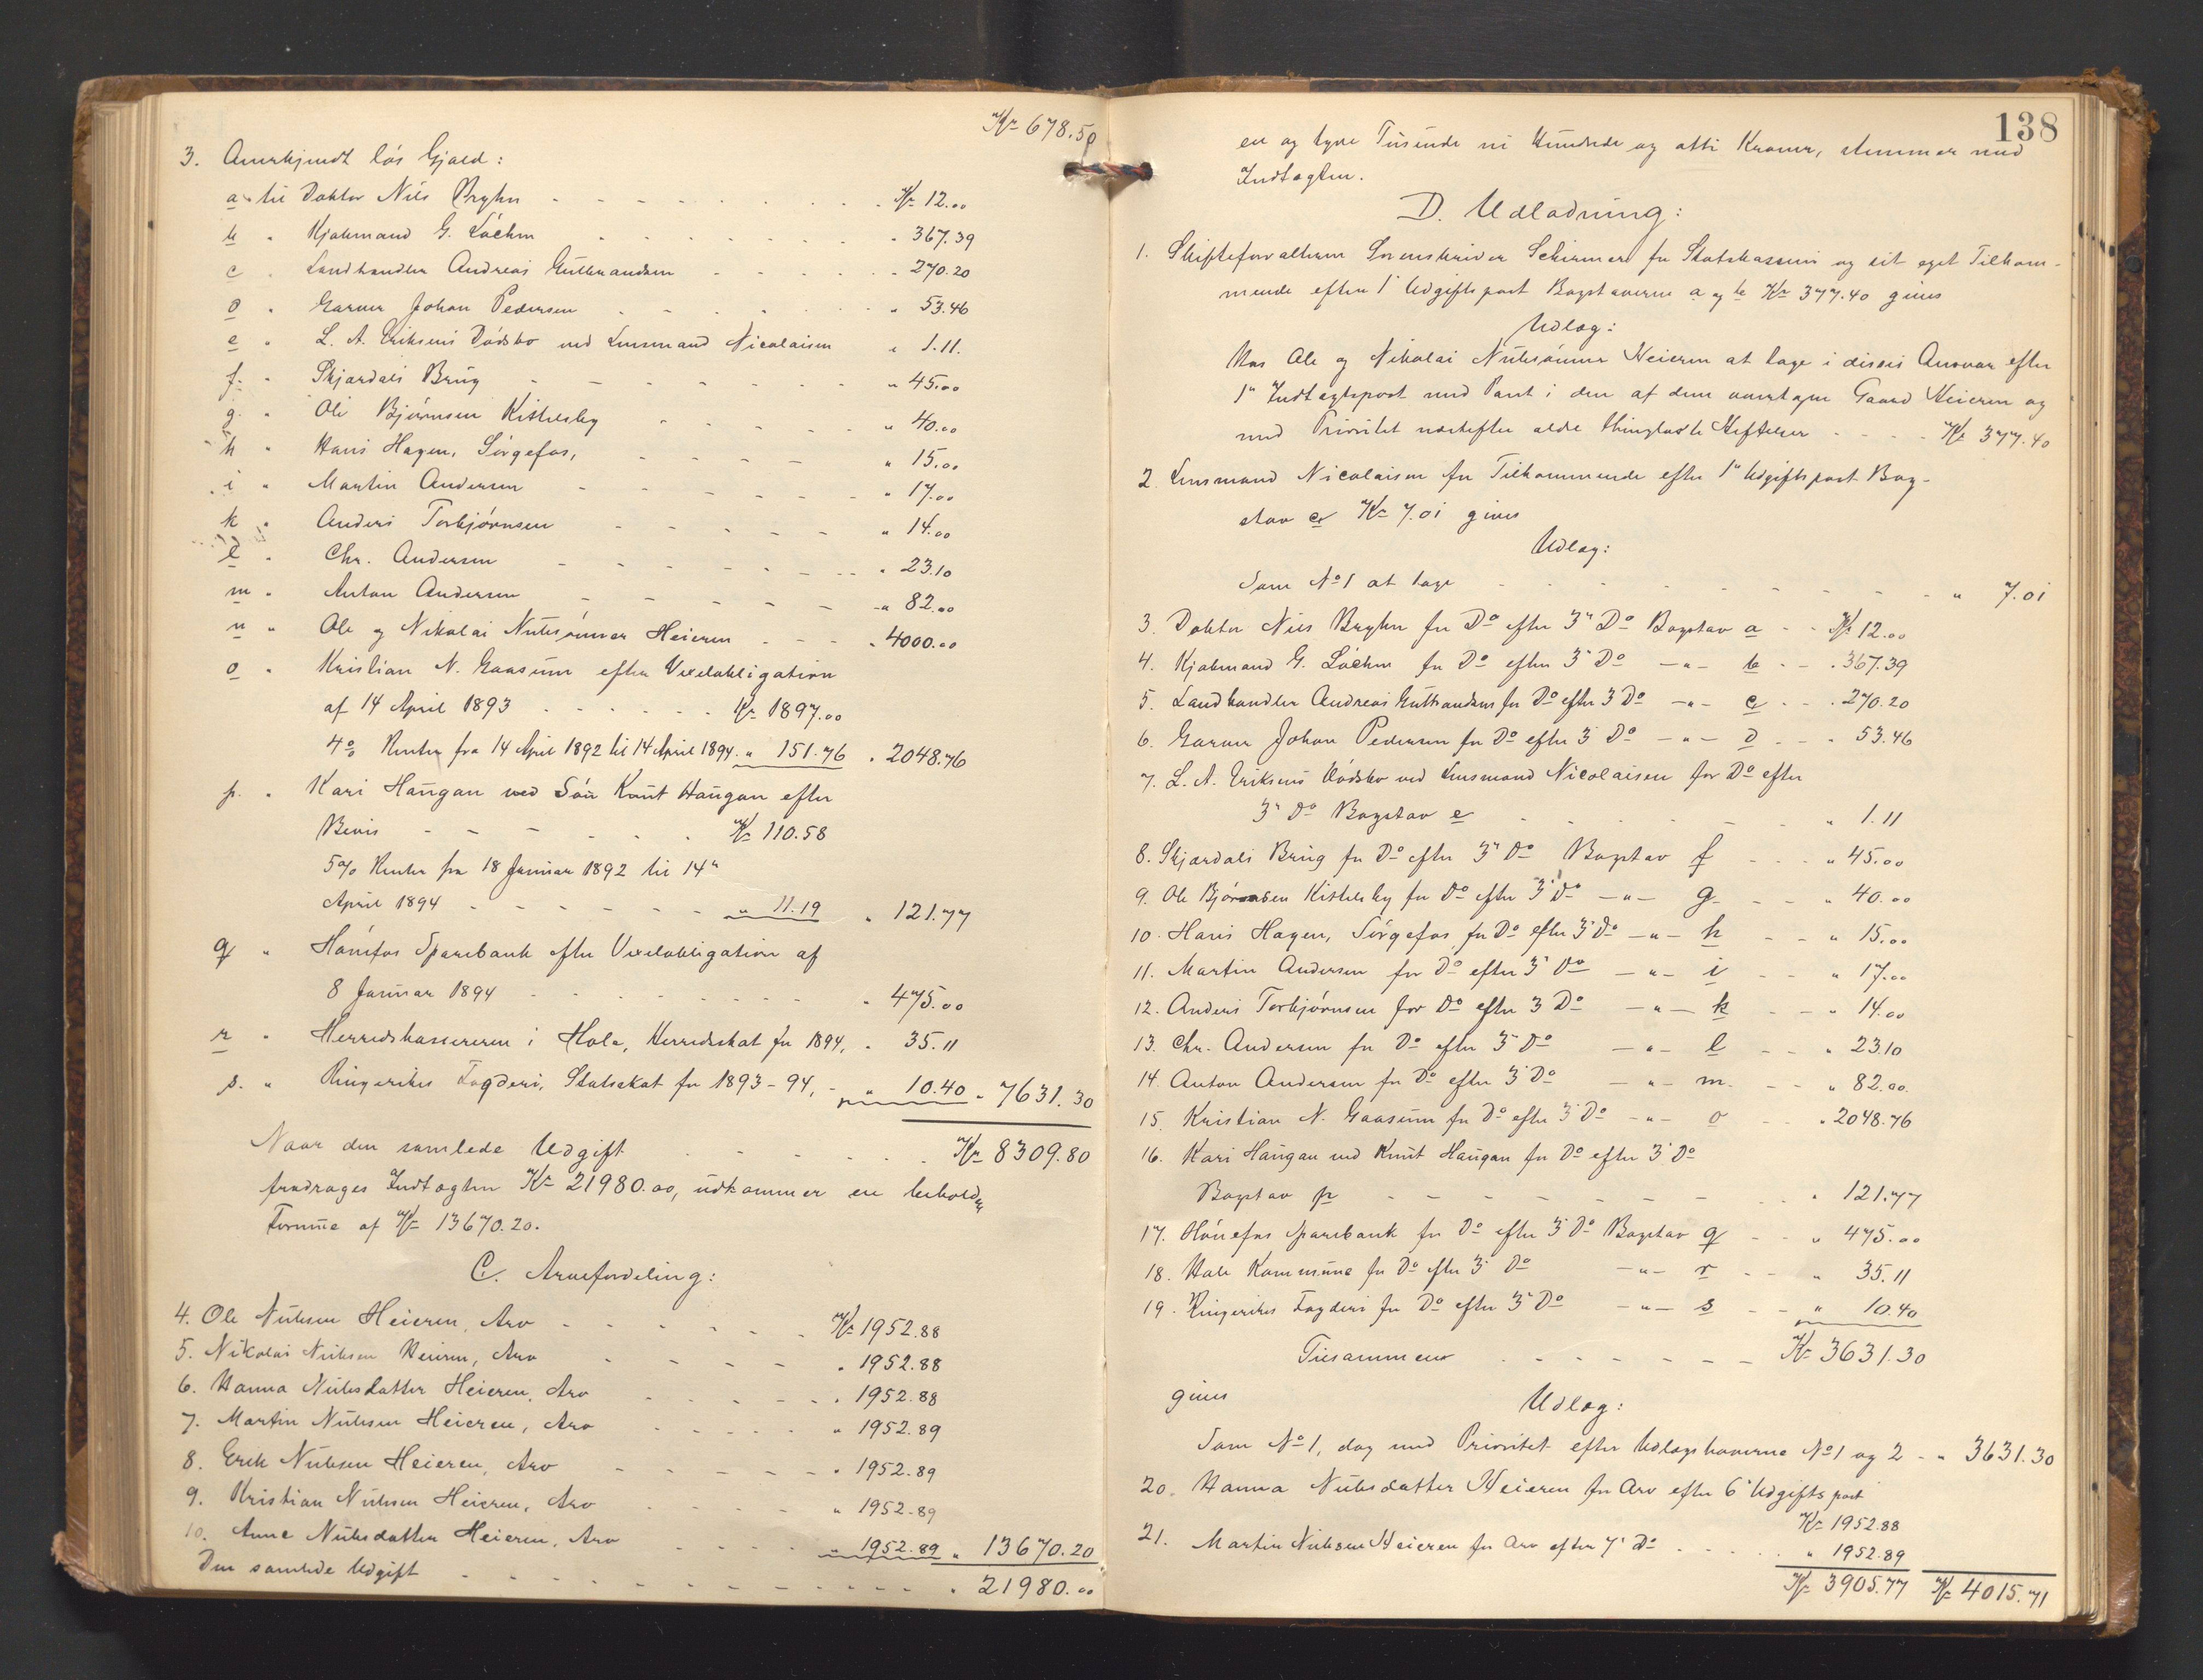 Kr 678.50
3. Anerkjendt løs Gjæld:
a. til Doktor Nils Bryhn - - - - Kr 12.00
b " Kjøbmand G. Løchen - - - - " 367.39
c " Landhandler Andreas Gulbrandsen - - - - " 270.20
d " Garver Johan Pedersen - - - - " 53.46
e " L. A. Eriksens Dødsbo ved Lensmand Nicolaisen " 1.11.
f. " Skjærdals Brug - - - - " 45.00
g. " Ole Bjørnsen Kittelsby - - - - " 40.00
h " Hans Hagen, Sørgefos, - - - - " 15.00
i " Martin Andersen - - - - " 17.00
k " Anders Torbjørnsen - - - - " 14.00
l " Chr. Andersen - - - - " 23.10
m " Anton Andersen - - - - " 82.00
n " Ole og Nikolai Nubsønner Heieren - - - " 4000.00
o " Kristian N. Gaasum efter Vexelobligation
af 14 April 1893 - - - - Kr 1897.00
4% Renter fra 14 April 1892 til 14 April 1894 " 151.76 " 2048.76
p. " Kari Haugan ved Søn Knut Haugan efter
Bevis - - - - Kr 110.58
5% Renter fra 18 Januar 1892 til 14"
April 1894 - - - - " 11.19 " 121.77
q " Hønefos Sparebank efter Vexelobligation af
8 Januar 1894 - - - - " 475.00
r " Herredskassereren i Hole, Herredskat for 1894, " 35.11
s. " Ringerikes Fogderi, Statsskat for 1893-94, - " 10.40 " 7631.30
Naar den samlede Udgift - - - - Kr 8309.80
fradrages Indtægten Kr 21980.00, udkommer en beholden
Formue af Kr 13670.20.
C. Arvefordeling:
4. Ole Nubsen Heieren, Arv - - - - Kr 1952.88
5. Nikolai Nubsen Heieren, Arv - - - - " 1952.88
6. Hanna Nubsdatter Heieren, Arv - - - - " 1952.88
7. Martin Nubsen Heieren, Arv - - - - " 1952.89
8. Erik Nubsen Heieren, Arv - - - - " 1952.89
9. Kristian Nubsen Heieren, Arv - - - - " 1952.89
10. Anne Nubsdatter Heieren, Arv - - - - " 1952.89 " 13670.20
Den samlede Udgift - - - - " 21980.00
138
en og tyve Tusinde ni Hundrede og otti Kroner, stemmer med
Indtægten.
D. Udlodning:
1. Skifteforvalteren Sorenskriver Schirmer for Statskassens og sit eget Tilkom-
mende efter 1' Udgiftspost Bogstaverne a og b Kr 377.40 gives
Udlæg:
Hos Ole og Nikolai Nubsønner Heieren at tage i disses Ansvar efter
1" Indtægtspost med Pant i den af dem overtagne Gaard Heieren og
med Prioritet næstefter ældre thinglæste Heftelser - - - - Kr 377.40
2. Lensmand Nicolaisen for Tilkommende efter 1" Udgiftspost Bog-
stav c Kr 7.01 gives
Udlæg:
Som No 1 at tage - - - - " 7.01
3. Doktor Nils Bryhn for Do efter 3" Do Bogstav a - - Kr 12.00
4. Kjøbmand G. Løchen for Do efter 3' Do -"- b - - " 367.39
5. Landhandler Andreas Gulbrandsen for Do efter 3 Do -"- c - - " 270.20
6. Garver Johan Pedersen for Do efter 3' Do -"- d - - " 53.46
7. L. A. Eriksens Dødsbo ved Lensmand Nicolaisen for Do efter
3' Do Bogstav e - - - - " 1.11
8. Skjærdals Brug for Do efter 3" Do Bogstav f - - - " 45.00
9. Ole Bjørnsen Kittelsby for Do efter 3' Do -"- g - - " 40.00
10. Hans Hagen, Sørgefos, for Do efter 3' Do -"- h - - " 15.00
11. Martin Andersen for Do efter 3' Do -"- i - - " 17.00
12. Anders Torbjørnsen for Do efter 3 Do -"- k - - " 14.00
13. Chr. Andersen for Do efter 3' Do -"- l - - " 23.10
14. Anton Andersen for Do efter 3' Do -"- m. - - " 82.00.
15. Kristian N. Gaasum for Do efter 3' Do -"- o - - " 2048.76
16. Kari Haugan ved Knut Haugan for Do efter 3' Do
Bogstav p - - - - " 121.77
17. Hønefos Sparebank for Do efter 3' Do Bogstav q - - " 475.00
18. Hole Kommune for Do efter 3' Do -"- r - - " 35.11
19. Ringerikes Fogderi for Do efter 3' Do -"- s - - " 10.40
Tilsammen - - - - Kr 3631.30
gives Udlæg:
Som No 1, dog med Prioritet efter Udlægshaverne No 1 og 2 - " 3631.30
20. Hanna Nubsdatter Heieren for Arv efter 6' Udgiftspost
Kr 1952.88
21. Martin Nubsen Heieren for Arv efter 7' Do - - - - " 1952.89
Kr 3905.77 Kr 4015.71